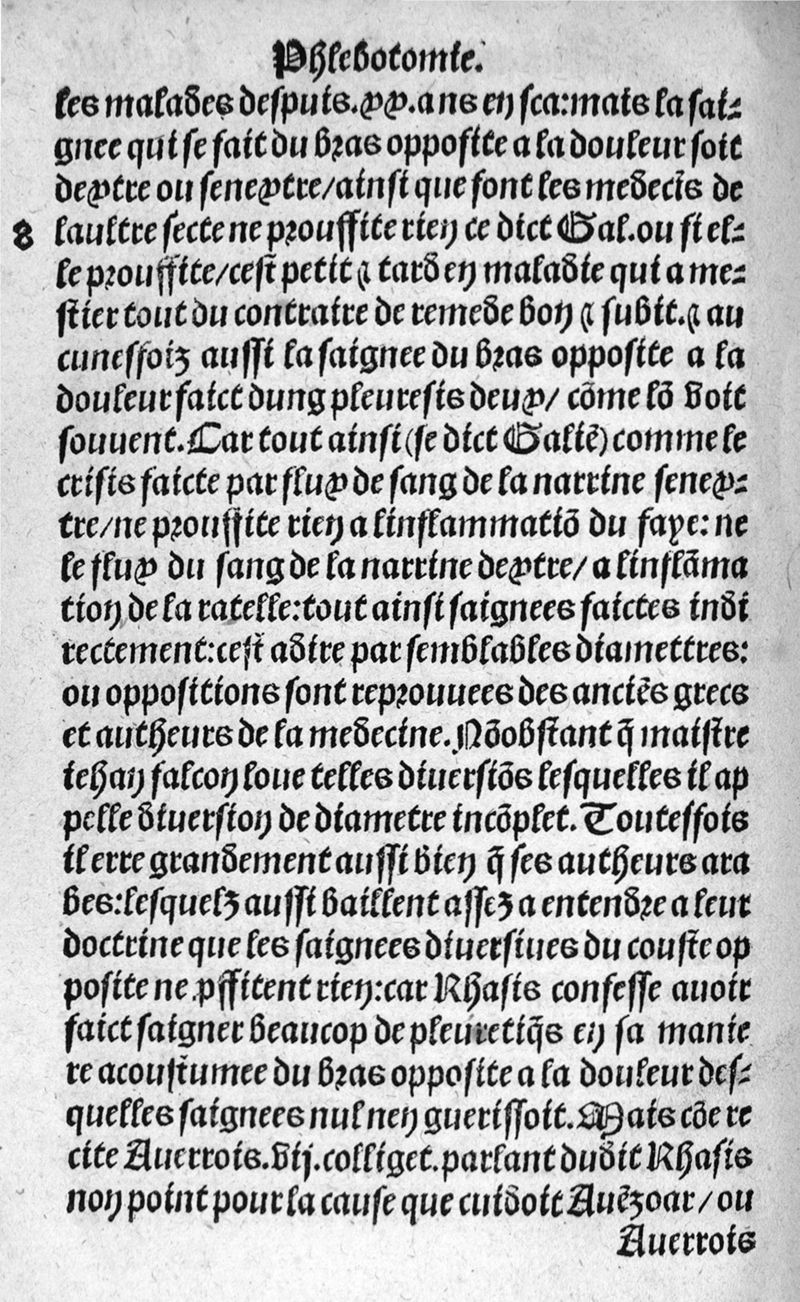 Phlebotomie.
les malades despuis.xx.ans en sca:mais la sai-
gnee qui se fait du bras opposite a la douleur soit
dextre ou senextre/ainsi que font les medecis̄ de
8 laultre secte ne prouffite rien ce dict Gal.ou si el-
le prouffite/cest petit ⁊ tard en maladie qui a me-
stier tout du contraire de remede bon ⁊ subit.⁊ au
cuneffoiz aussi la saignee du bras opposite a la
douleur faict dung pleuresis deux/ cōme lō voit
souvent.Car tout ainsi (se dict Galiē) comme le
crisis faicte par flux de sang de la narrine senex-
tre/ne prouffite rien a linflammatiō du faye: ne
le flux du sang de la narrine dextre/ a linflāma
tion de la ratelle:tout ainsi saignees faictes indi
rectement:cest adire par semblables diamettres:
ou oppositions sont reprouuees des anciēs grecs
et autheurs de la medecine.Nōobstant q̄ maistre
iehan falcon loue telles diuersiōs lesquelles il ap
pelle diuersion de diametre incōplet.Touteffois
il erre grandement aussi bien q̄ ses autheurs ara
bes:lesquelz aussi baillent assez a entendre a leur
doctrine que les saignees diuersiues du couste op
posite ne ꝓffitent rien:car Rhasis confesse auoir
faict saigner beaucop de pleuretiq̄s en sa manie
re acoustumee du bras opposite a la douleur des-
quelles saignees nul nen guerissoit.Mais cōe re
cite Auerrois.vij.colliget.parlant dudit Rhasis
non point pour la cause que cuidoit Auēzoar/ou
Auerrois